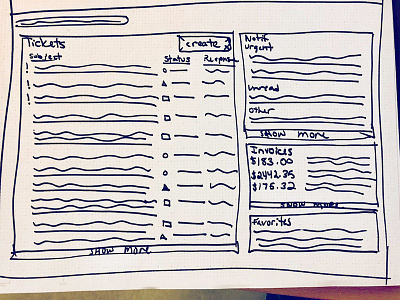 Tickets
create
Subject
Status
!
!
!
SHOW MORE
Notif
urgent
unread
other
SHOW MORE
Invoices
$183.00
$2442.35
$175.32
SHOW MORE
Favorites